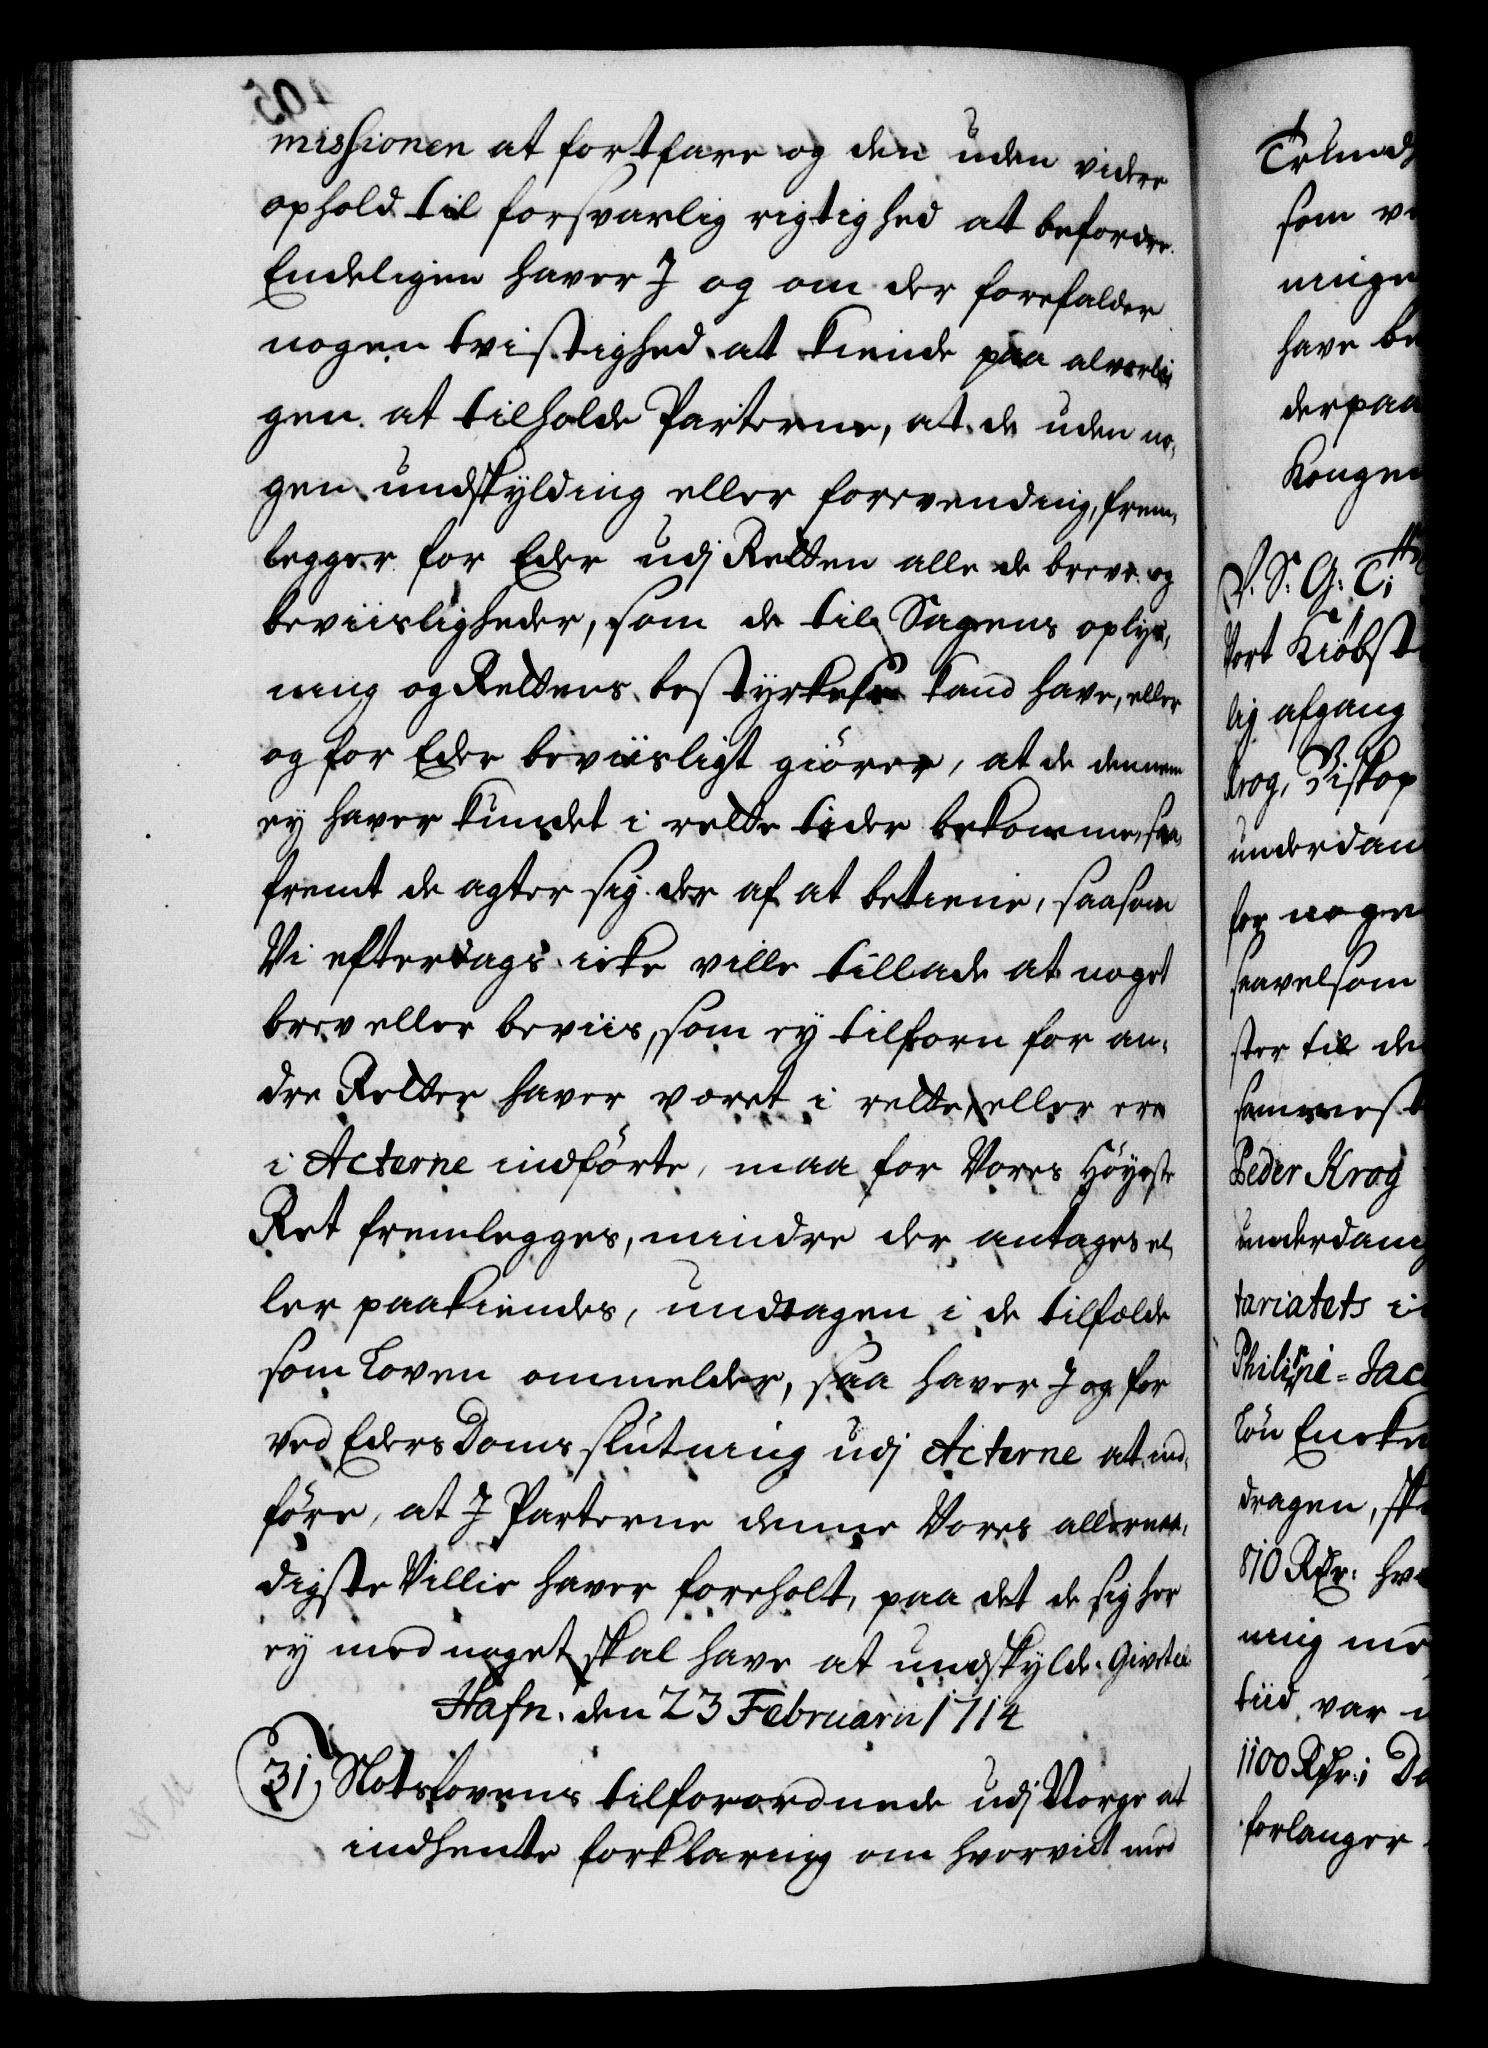 missionen at fortfare og den uden videre
ophold til forsvarlig rigtighed at befordre.
Endeligen haver I og om der forefalder
nogen tvistighed at kiende paa alvorli
gen at tilholde Parterne, at de uden no,
gen undskylding eller forevending, frem,
legger for Eder udj Retten alle de breve og
beviisligheder, som de til Sagens oplys,
ning og Rettens bestyrkelse kand have, eller
og for Eder beviisligt giører, at de dennem
ey haver kundet i rette tider bekomme, saa,
fremt de agter sig der af at betiene, saasom
Vi efterdags icke ville tillade at noget
brev eller beviis, som ey tilforn for an,
dre Retter haver været i rette, eller ere
i Acterne indførte, maa for Vores Høyeste
Ret fremlegges, mindre der antages el,
ler paakiendes, undtagen i de tilfælde
som Loven ommelder, saa haver I og for
ved Eders Doms slutning udj Acterne at ind,
føre, at I Parterne denne Vores allernaa,
digste Villie haver foreholt, paa det de sig her
ey med noget skal have at undskylde. Givet
Hafn. den 23 Februarii 1714
31, Slotslovens tilforordnede udj Norge at
indhente forklaring om hvorvit med
Trund
som
ninge
have be
derpaa
Kongen
V. S. G. T.
Vort Kiøbst
lig afgang
Krog, Biskop
underdan
for nogen
saavelsom
ster til de
sammest
Peder Krog
underdanig
tariatets i
Philipi = Jac
Løn Encke
dragen, sk
810 Rdr: hv
ning me
tiid var
1100 Rdr: i Da
forlanger